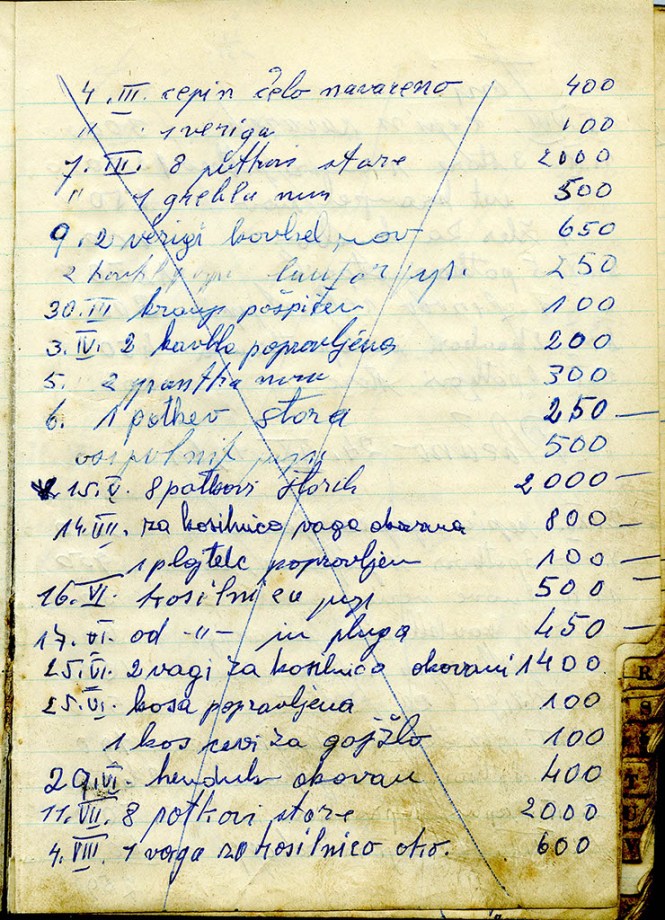 4. III. cepin čelo navareno 400
" 1 veriga 100
7. III. 8 potkvi stare 2000
" 1 500
9. 2 verigi nov 650
2 250
30. III kramp pošpičen 100
3. IV. 2 kavkla popravljena 200
5. 2 300
6. 1 potkev stara 250 —
500
15. V. 8 potkovi starih 2000 —
14. VII. za kosilnico vaga okovana 800 —
1 plajtelc popravljen 100 —
16. VI. kosilnica 500 —
17. VI. od -"- in pluga 450 —
25. VI. 2 vagi za kosilnico okovani 1400
25. VI. kosa popravljena 100
1 kos cevi za gojžlo 100
29. VI. okovan 400
11. VII. 8 potkvi stare 2000
4. VIII. 1 vaga za kosilnico oko. 600
R
S
T
U
V